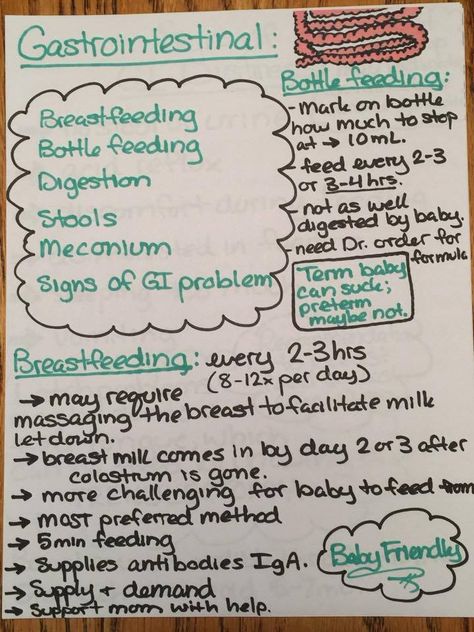 Gastrointestinal:
Breastfeeding
Bottle feeding
Digestion
Stools
Meconium
Signs of GI problem
Bottle feeding:
- mark on bottle
how much to stop
at → 10 mL.
- feed every 2-3
or 3-4 hrs.
- not as well
digested by baby.
- need Dr. order for
formula
Term baby
can suck;
preterm
maybe not.
Breastfeeding: every 2-3hrs
(8-12x per day)
→ may require
massaging the breast to facilitate milk
let down.
→ breast milk comes in by day 2 or 3 after
colostrum is gone.
→ more challenging for baby to feed from
→ most preferred method
→ 5 min feeding
→ Supplies antibodies IgA.
→ Supply + demand
→ Support mom with help.
Baby Friendly